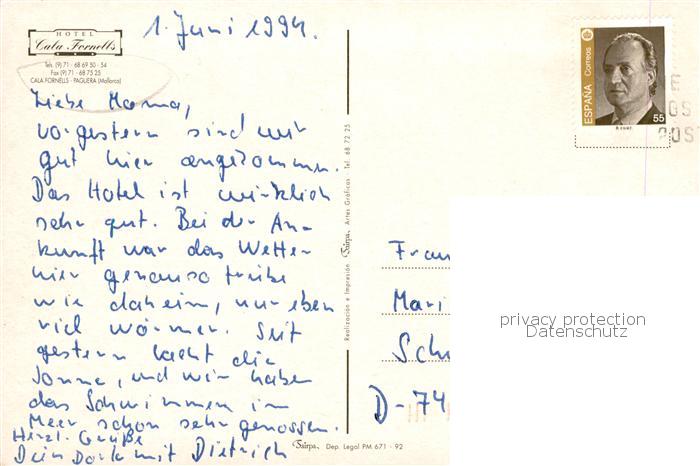 HOTEL
Cala Fornells
Tels. (9) 71 - 68 69 50 - 54
Fax (9) 71 - 68 75 25
CALA FORNELLS - PAGUERA (Mallorca)
1. Juni 1994.
Liebe Mama,
vorgestern sind wir
gut hier angekommen.
Das Hotel ist wirklich
sehr gut. Bei der An-
kunft war das Wetter
hier genauso trübe
wie daheim, nur eben
viel wärmer. Seit
gestern lacht die
Sonne, und wir haben
das Schwimmen im
Meer schon sehr genossen.
Herzl. Grüße
Dein Dork mit Dietrich
Realización e Impresión Artes Gráficas - Tel. 68 72 25
Dep. Legal PM 671 - 92
ESPAÑA Correos
55
Frau
Mari
Sch
D-74
privacy protection
Datenschutz